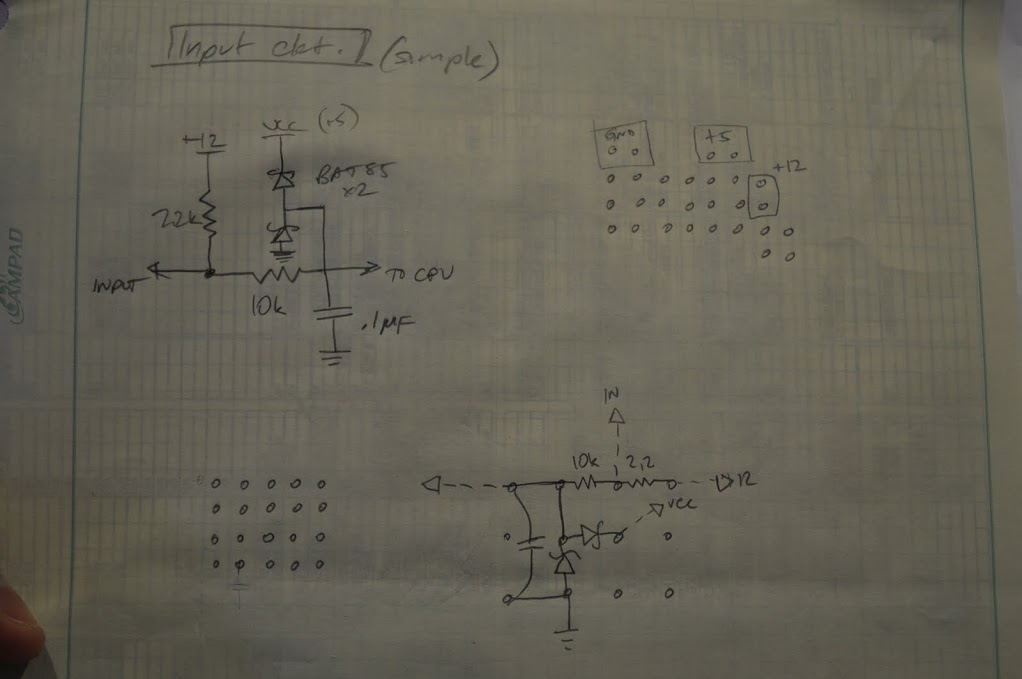 Input ckt. (Simple)
+12
Vcc (+5)
BAT85
x2
22k
INPUT
TO CPU
10k
.1µF
GND
+5
+12
CAMPAD
IN
10k
2,2
12
VCC